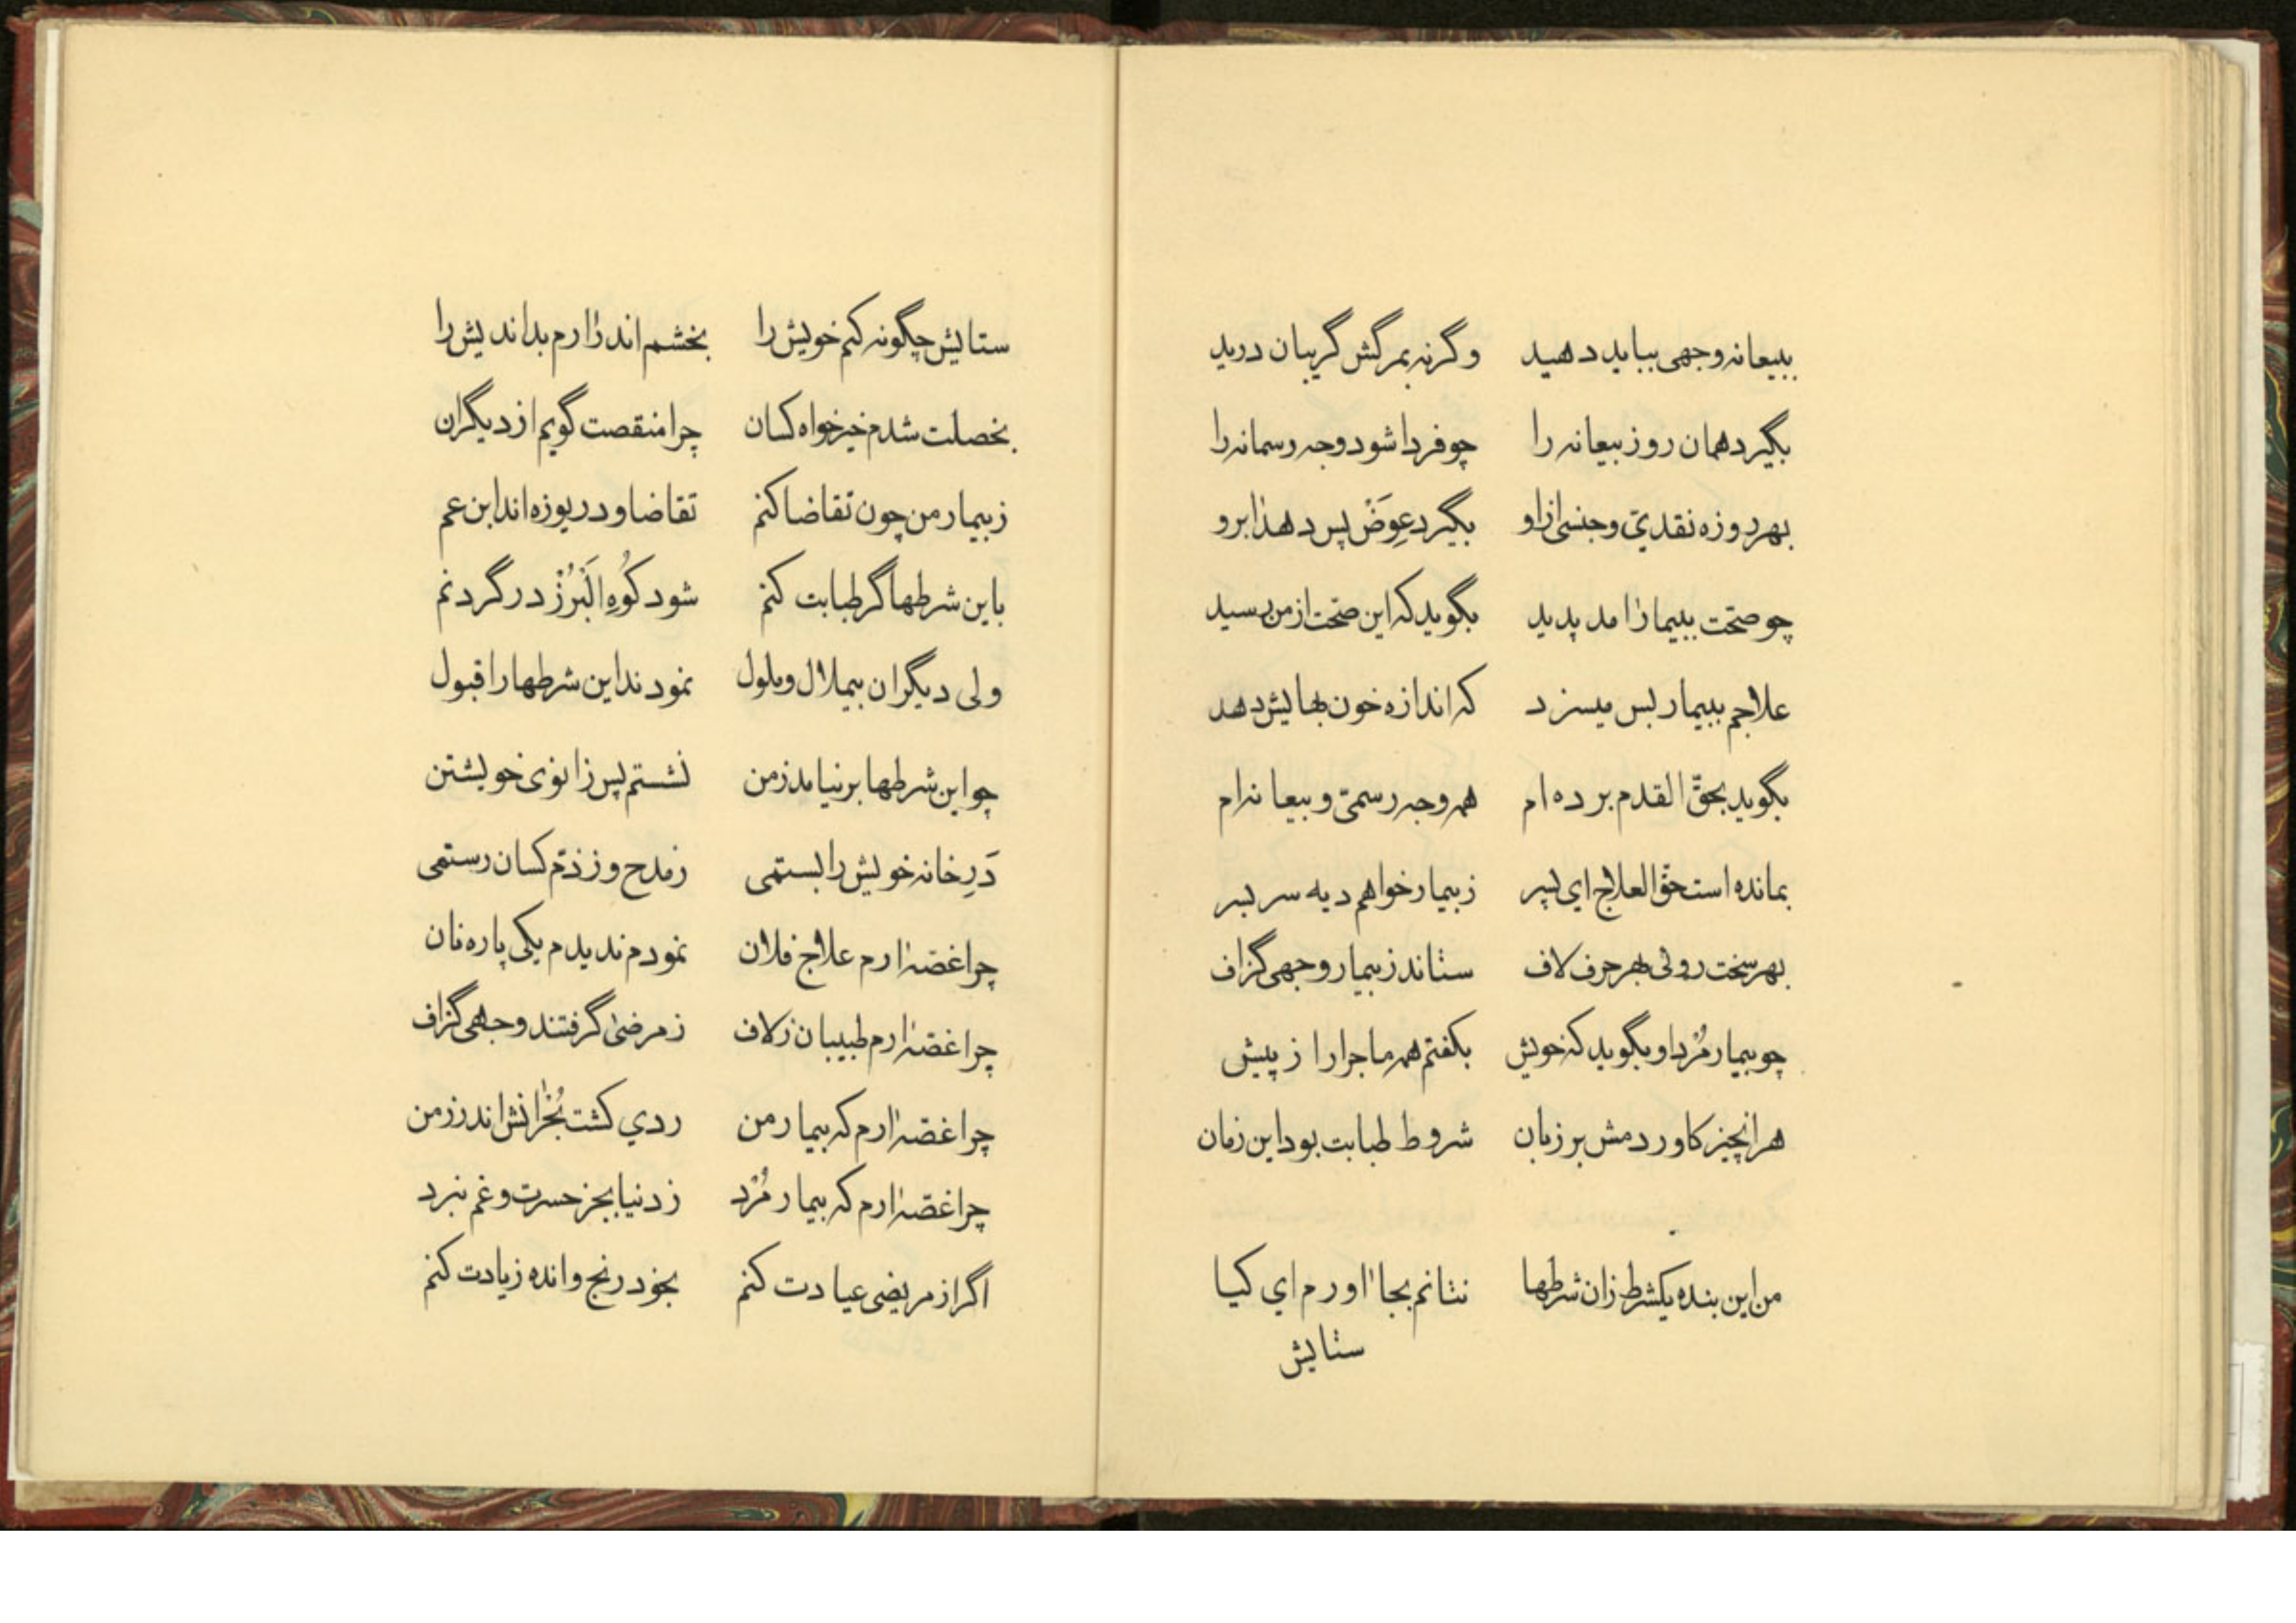 ببیعانه وجهی بباید دهید وگرنه بمرگش گریبان درید
بگیرد همان روز بیعانه را چو فردا شود وجه رسمانه را
بهر روزه نقدی و جنسی ازاو بگیرد عِوَضْ پس دهد ابرو
چو صحّت ببیمار آمد پدید بگوید که این صحّت از من رسید
علاجم ببیمار بس میسزد که اندازه خون بهایش دهد
بگوید بحقّ القدم برده ام همه وجه رسمیّ و بیعانه ام
بمانده است حقّ العلاج ای پسر ز بیمار خواهم دیه سر بسر
بهر سخت روئی بهر حرف لاف ستاند ز بیمار وجهی گزاف
چو بیمار مُرد او بگوید که خویش بگفتم همه ماجرا را ز پیش
هر انچیز کاوردمش بر زبان شروط طبابت بود این زمان
من این بنده یکشرط زان شرطها نتانم بجا آورم ای کیا
ستایش
ستایش چگونه کنم خویش را بخشم اندر آرم بداندیش را
بخصلت شدم خیرخواه کسان چرا منقصت گویم از دیگران
ز بیمار من چون تقاضا کنم تقاضا و دریوزه اند ابن عم
باین شرطها گر طبابت کنم شود کُوهِ اَلْبُرْزْ در گردنم
ولی دیگران بیملال و ملول نمودند این شرطها را قبول
چو این شرطها بر نیامد ز من نشستم پس زانوی خویشتن
دَرِ خانه خویش را بستمی ز مدح و ز ذمّ کسان رستمی
چرا غصّه آرم علاج فلان نمودم ندیدم یکی پاره نان
چرا غصّه آرم طبیبان ز لاف ز مرضیٰ گرفتند وجهی گزاف
چرا غصّه آرم که بیمار من ردی گشت بُحْرانش اندر زمن
چرا غصّه آرم که بیمار مُرْد ز دنیا بجز حسرت و غم نبرد
اگر از مریضی عیادت کنم بخود رنج و انده زیادت کنم